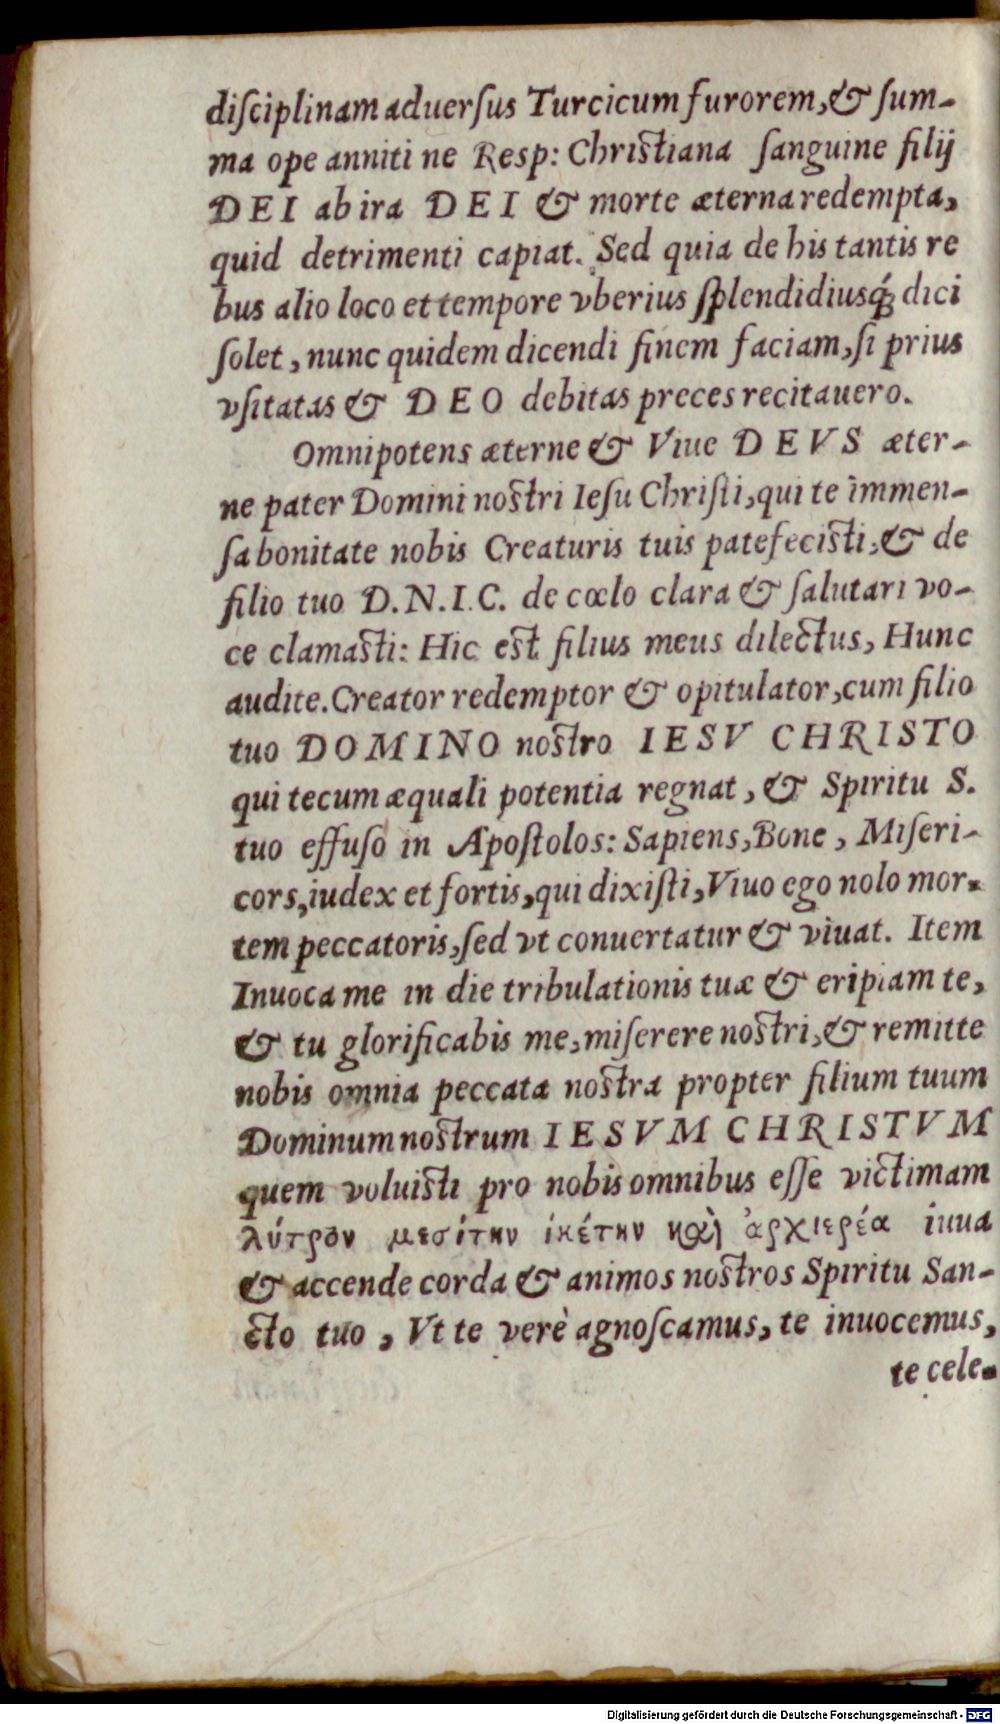 diſciplinam aduerſus Turcicum furorem, & ſum-
ma ope anniti ne Resp: Christiana ſanguine filij
DEI ab ira DEI & morte æterna redempta,
quid detrimenti capiat. Sed quia de his tantis re
bus alio loco et tempore vberius ſplendidiusq́; dici
ſolet, nunc quidem dicendi finem faciam, ſi prius
vſitatas & DEO debitas preces recitauero.
Omnipotens æterne & Viue DEVS æter-
ne pater Domini nostri Ieſu Chriſti, qui te immen-
ſa bonitate nobis Creaturis tuis patefecisti, & de
filio tuo D.N.I.C. de cœlo clara & ſalutari vo-
ce clamasti: Hic est filius meus dilectus, Hunc
audite. Creator redemptor & opitulator, cum filio
tuo DOMINO nostro IESV CHRISTO
qui tecum æquali potentia regnat, & Spiritu S.
tuo effuſo in Apoſtolos: Sapiens, Bone, Miſeri-
cors, iudex et fortis, qui dixiſti, Viuo ego nolo mor-
tem peccatoris, ſed vt conuertatur & viuat. Item
Inuoca me in die tribulationis tuæ & eripiam te,
& tu glorificabis me, miſerere nostri, & remitte
nobis omnia peccata nostra propter filium tuum
Dominum nostrum IESVM CHRISTVM
quem voluisti pro nobis omnibus eſſe victimam
λύτρον μεσίτην ἱκέτην καὶ ἀρχιερέα iuua
& accende corda & animos nostros Spiritu San-
cto tuo, Vt te verè agnoſcamus, te inuocemus,
te cele-
Digitalisierung gefördert durch die Deutsche Forschungsgemeinschaft - DFG